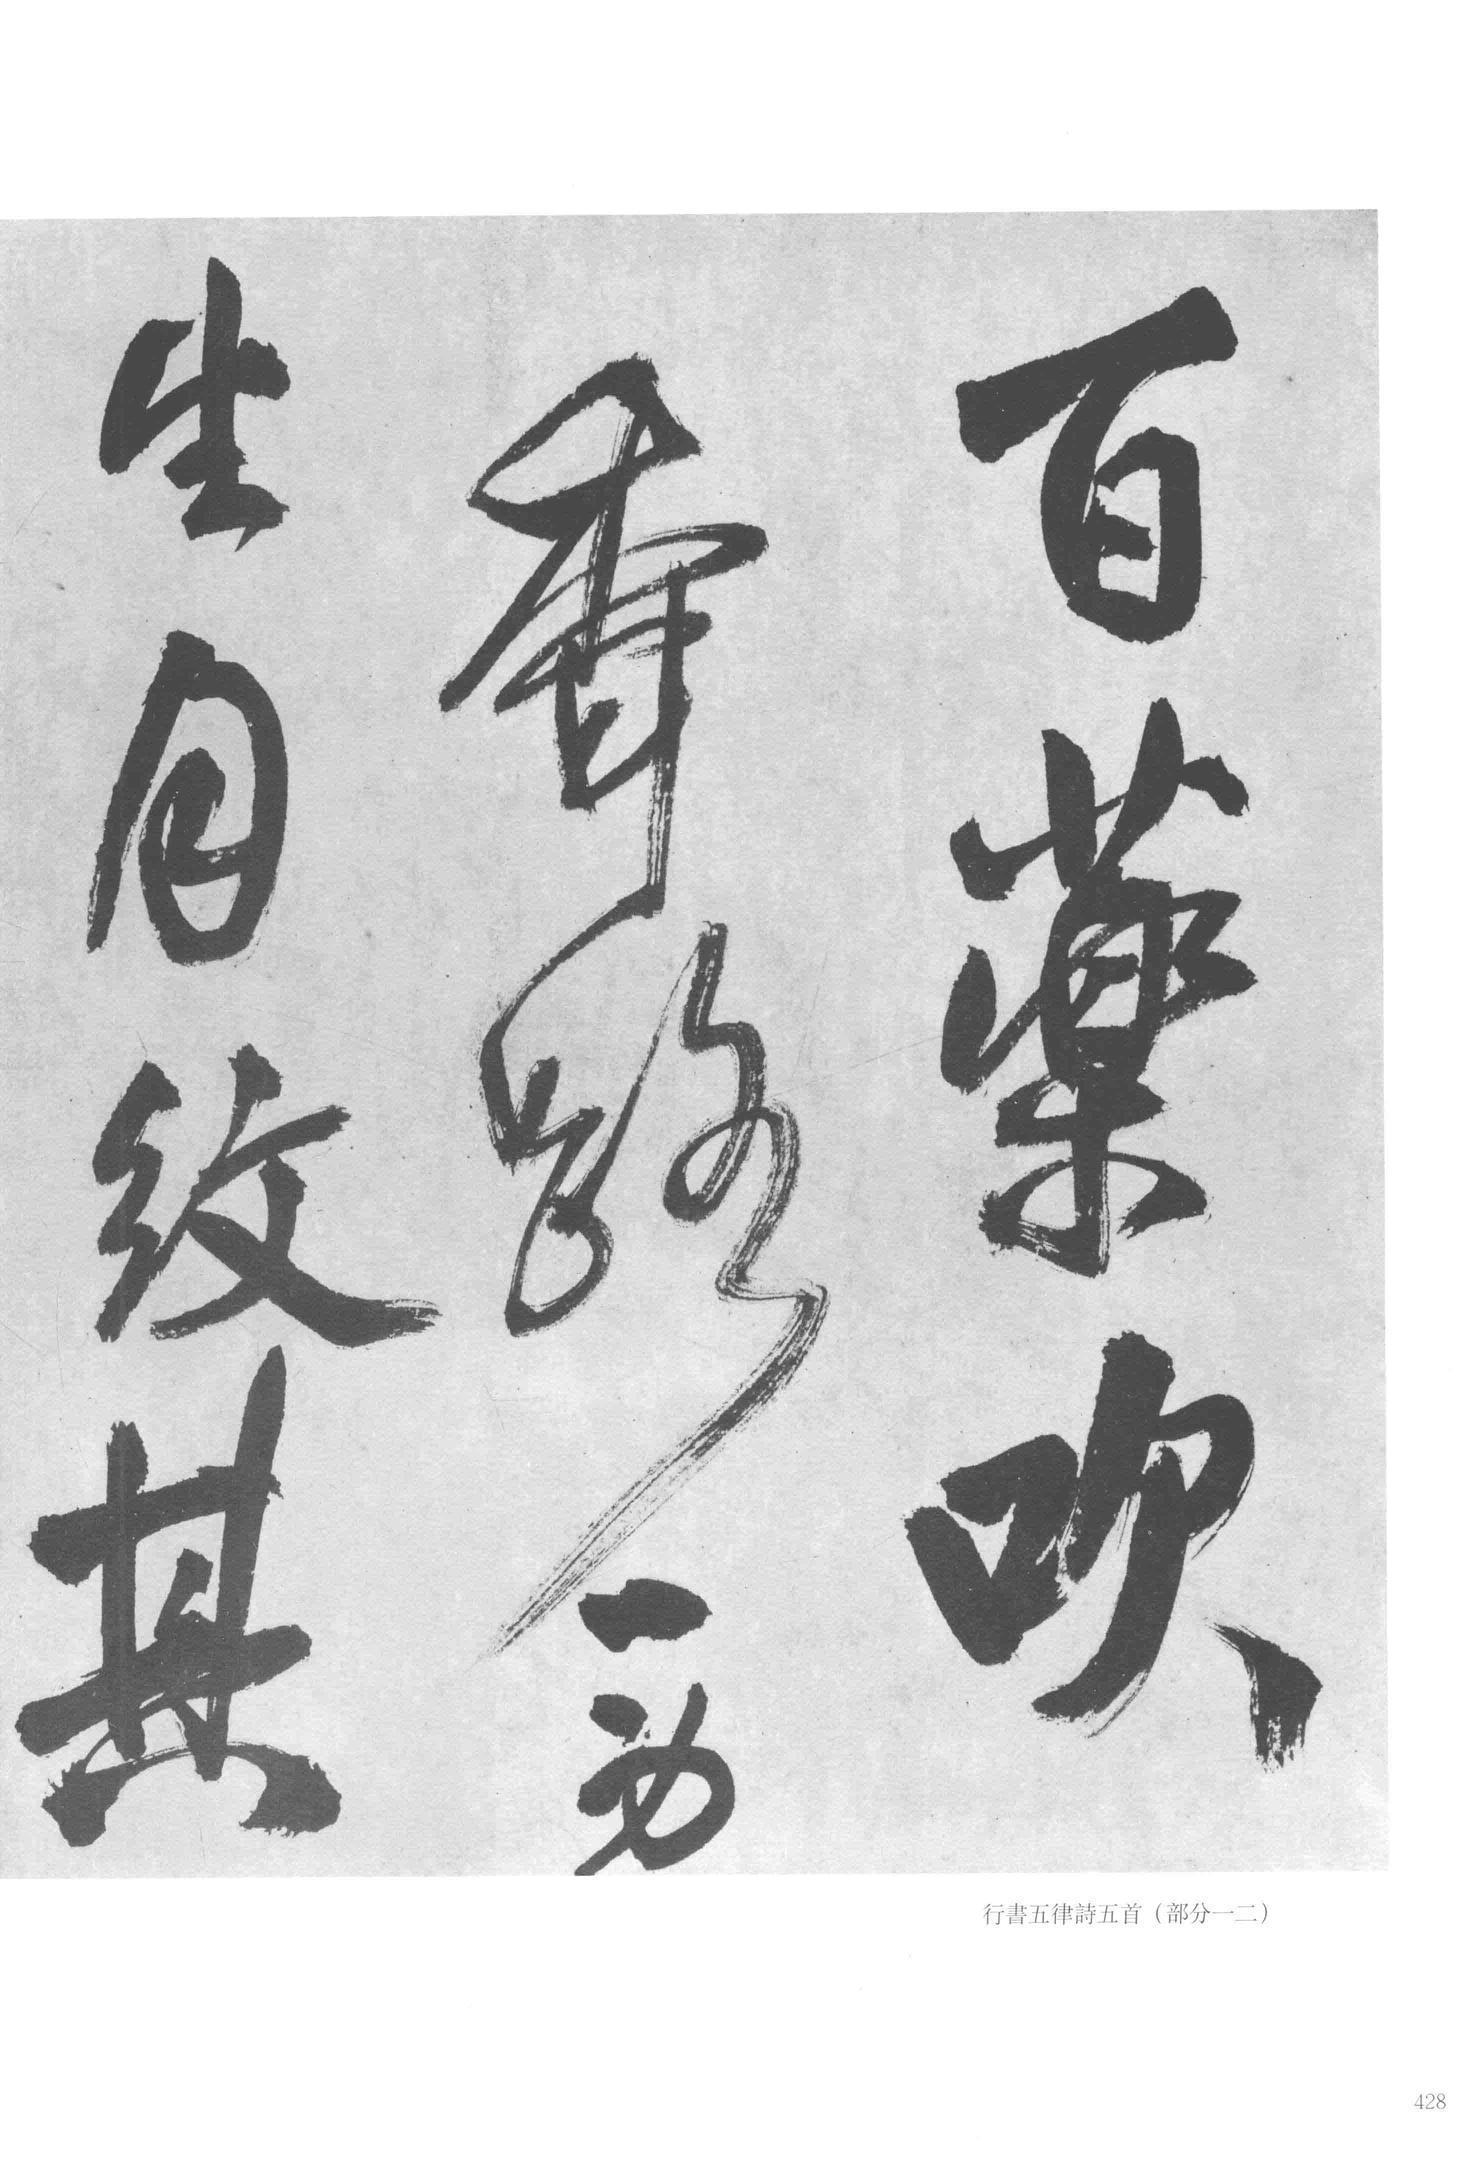 百藥吹
香路一
生月紋其
行書五律詩五首（部分一二）
428